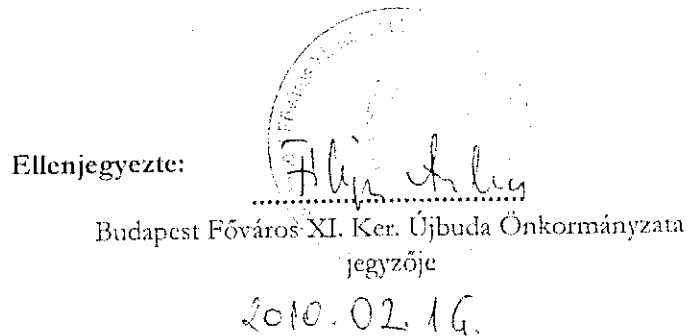 Főváros XI.
Ellenjegyezte:
Budapest Főváros XI. Ker. Újbuda Önkormányzata
jegyzője
2010. 02. 16.